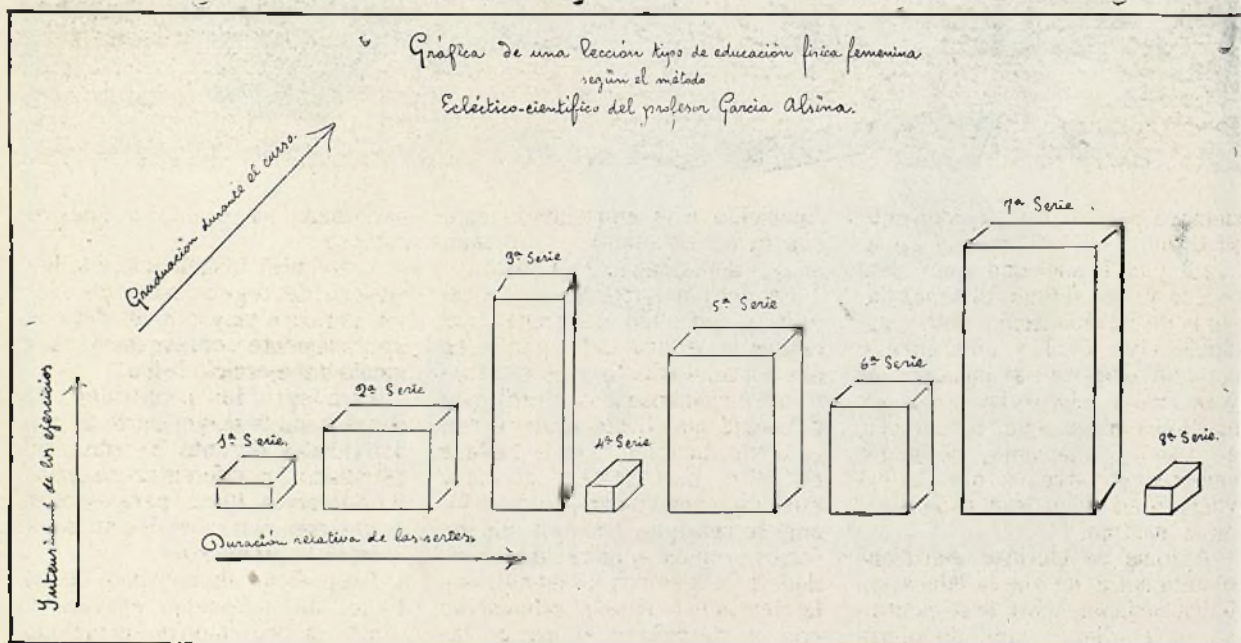 Gráfica de una lección tipo de educación física femenina
según el método
Ecléctico-científico del profesor Garcia Alsina.
Graduación durante el curso.
Intensidad de los ejercicios
1ª Serie.
2ª Serie
3ª Serie
4ª Serie
5ª Serie
6ª Serie
7ª Serie
8ª Serie.
Duración relativa de las series